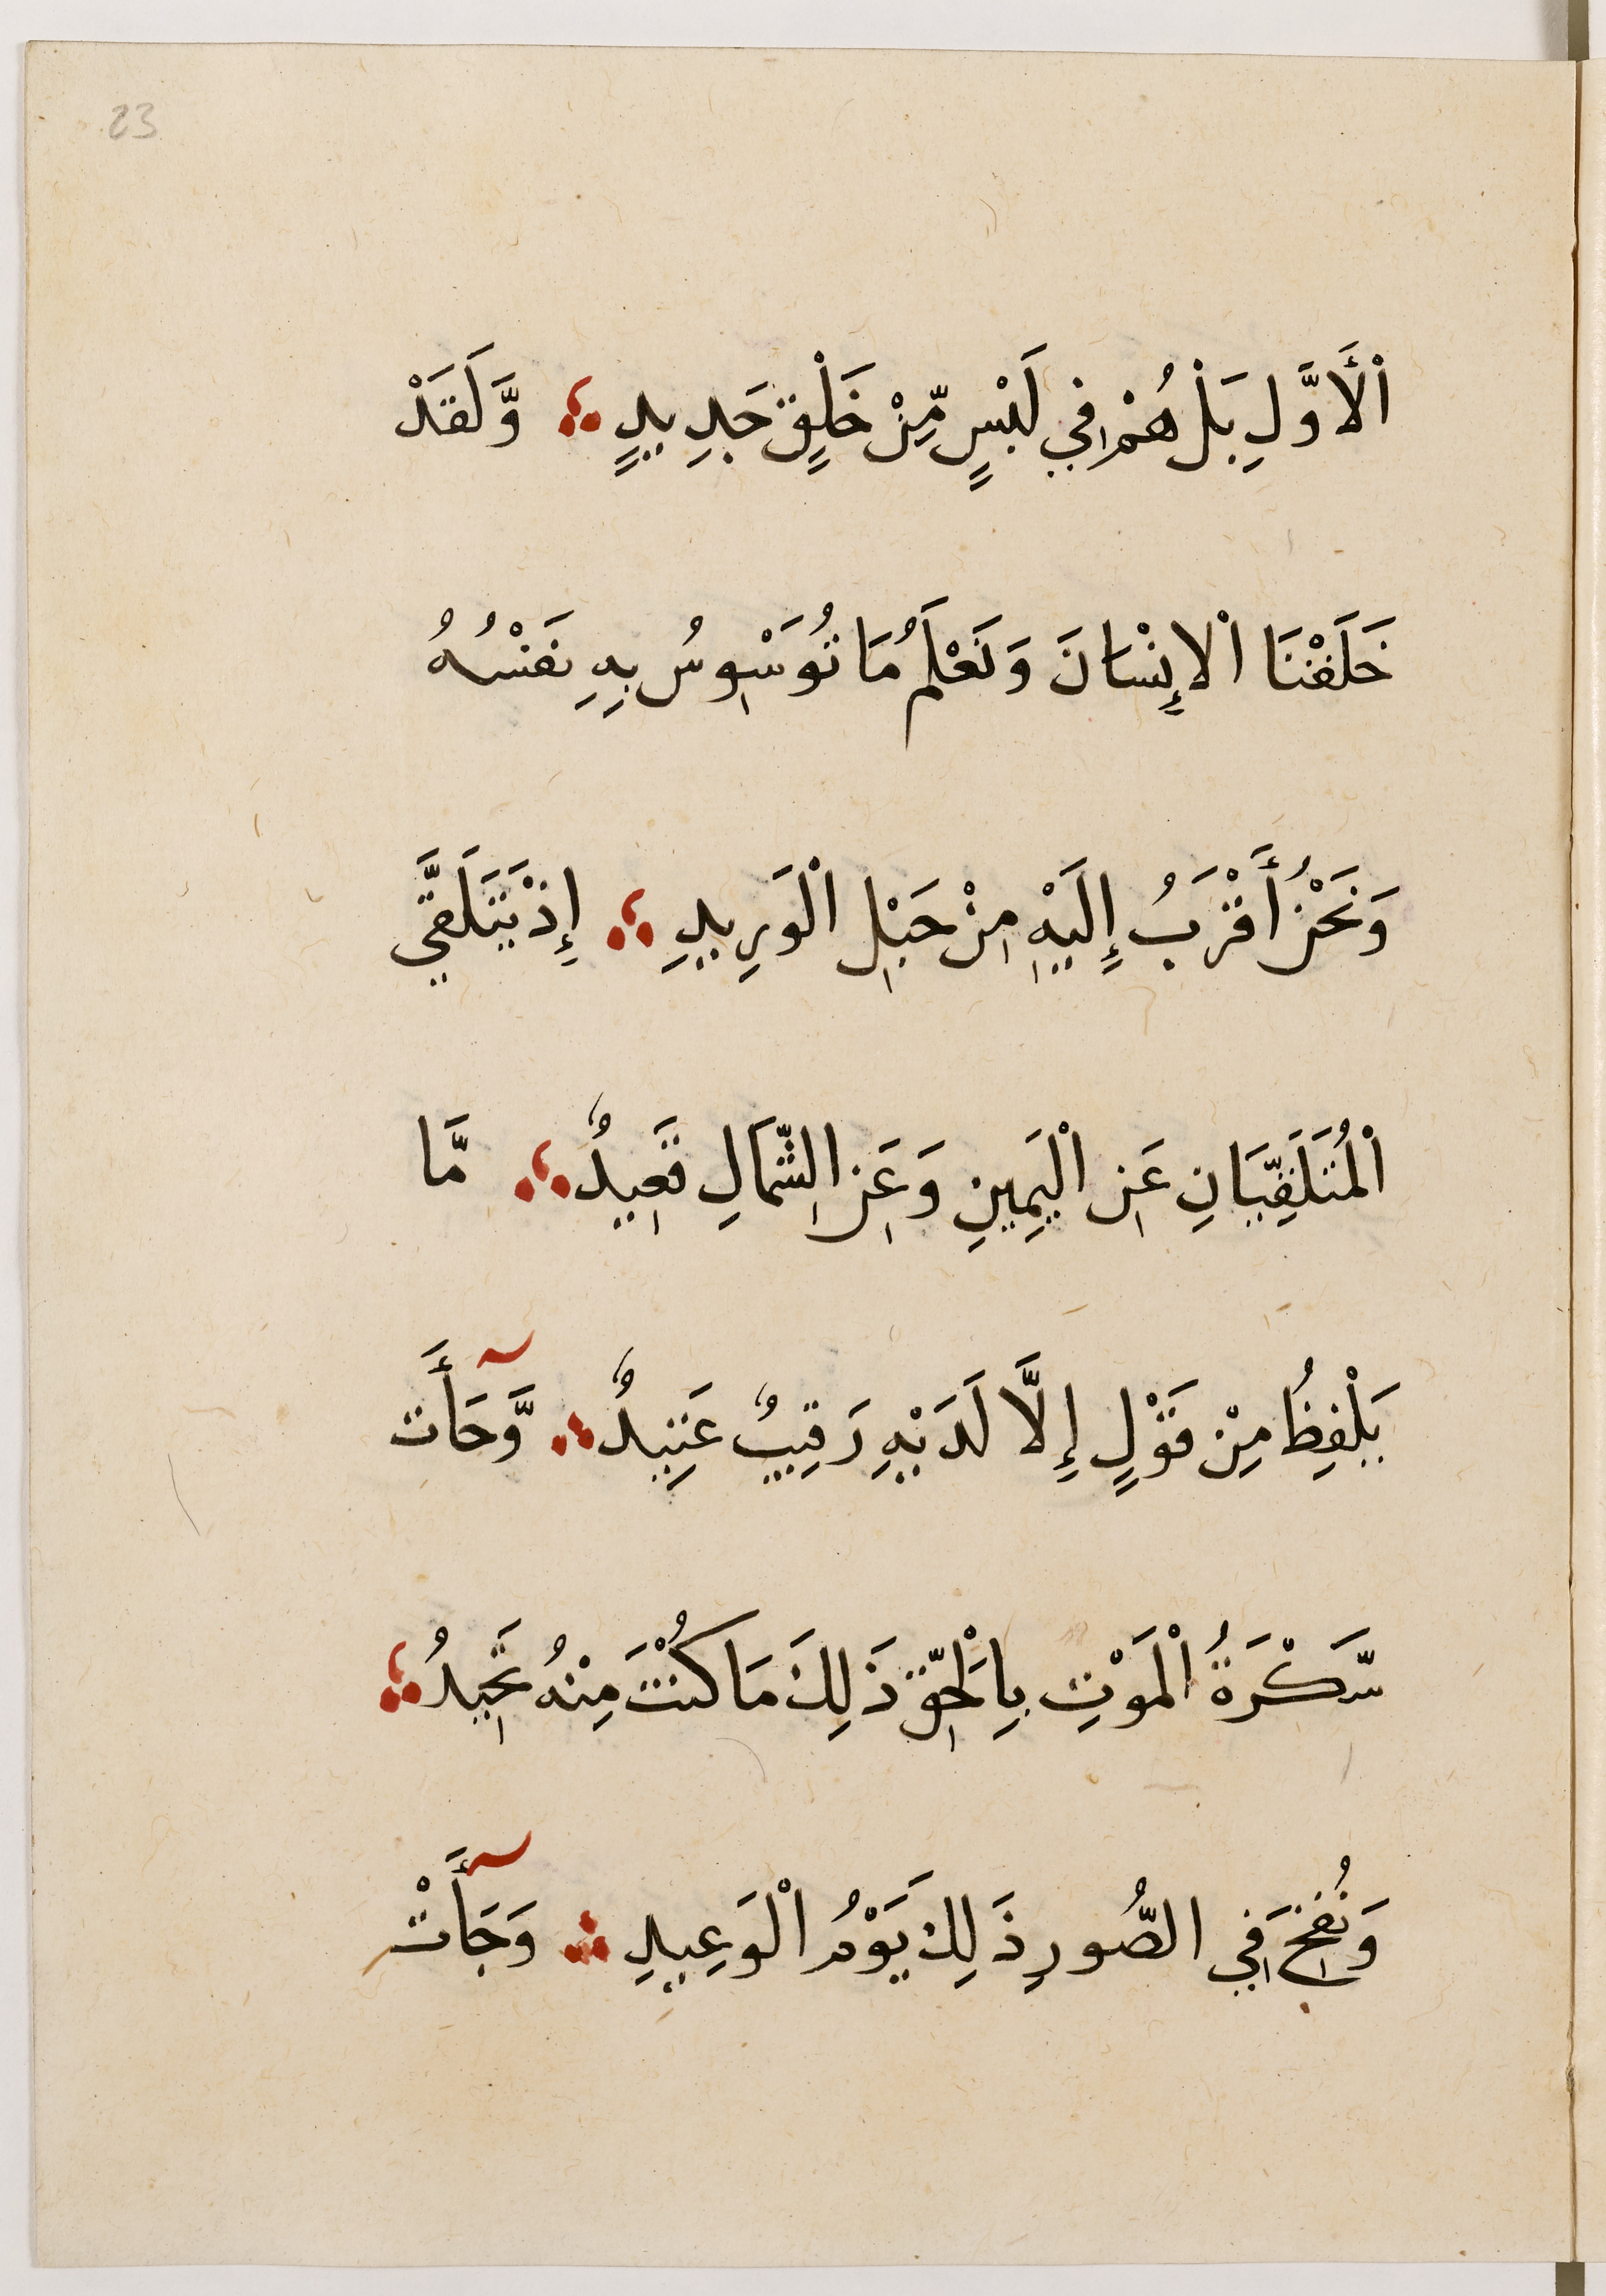 23
اْلأَوَّلِ بَلْ هُمْ فِي لَبْسٍ مِّنْ خَلْقٍ جَدِيدٍ وَّلَقَدْ
خَلَقْنَا اْلإِنْسَانَ وَنَعْلَمُ مَا تُوَسْوِسُ بِهِ نَفْسُهُ
وَنَحْنُ أَقْرَبُ إِلَيْهِ مِنْ حَبْلِ اْلوَرِيدِ إِذْ يَتَلَقَّي
اْلمُتَلَقِّيَانِ عَنِ اْليَمِينِ وَعَنِ الشِّمَالِ قَعِيدٌ مَّا
يَلْفِظُ مِنْ قَوْلٍ إِلَّا لَدَيْهِ رَقِيبٌ عَتِيدٌ وَّجَآَٔت
سَّكْرَةُ اْلمَوْتِ بِاْلحَقِّ ذَلِكَ مَا كُنْتَ مِنْهُ تَحِيدُ
وَنُفِخَ فِي الصُّورِ ذَلِكَ يَوْمُ اْلوَعِيدِ وَجَآَٔتْ